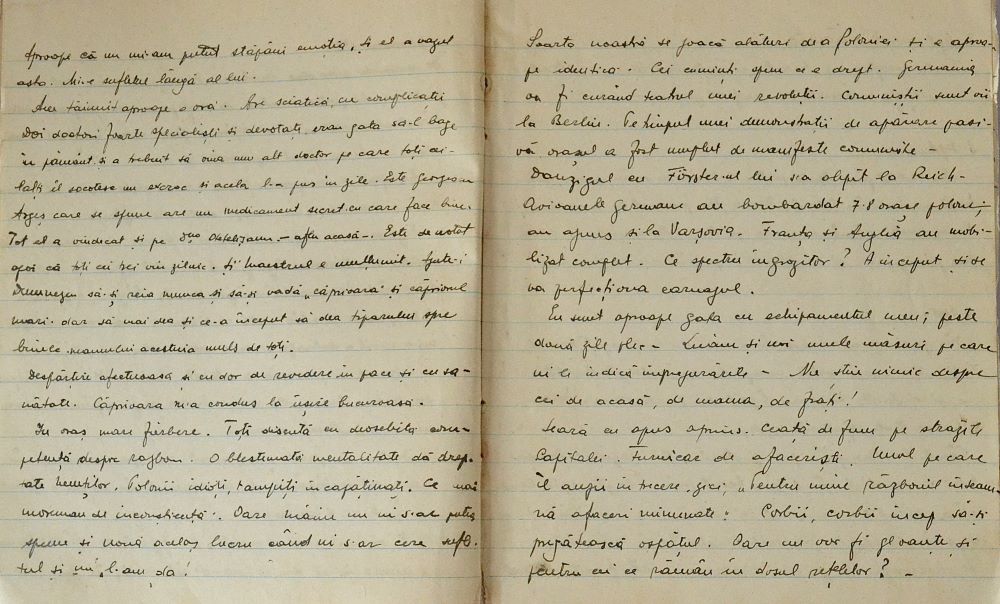 Aproape că nu mi-am putut stăpâni emoția. Și el a văzut
asta. Mi-e sufletul lângă al lui.
Am tăinuit aproape o oră. Are sciatică, cu complicații
Doi doctori foarte specialiști și devotați, erau gata să-l bage
în pământ și a trebuit să vină un alt doctor pe care toți cei-
lalți îl socotesc un excroc și acela l-a pus în zile. Este Georgescu
Argeș care se spune are un medicament secret cu care face bine.
Tot el a vindecat și pe Dna - aflu acasă -. Este de notat
apoi că toți cei trei vin zilnic. Și Maestrul e mulțumit. Ajute-i
Dumnezeu să-și reia munca și să-și vadă „căprioara" și căpriorul
mari. dar să mai dea și ce-a început să dea tiparului spre
binele neamului acestuia muls de toți.
Despărțire afectuoasă și cu dor de revedere în pace și cu să-
nătate. Căprioara m-a condus la ușire bucuroasă.
In oraș mare fierbere. Toți discută cu deosebită com-
petență despre războiu. O blestemată mentalitate dă drep-
tate nemților. Polonii idioți, tâmpiți încăpățânați. Ce
morman de inconștiență. Oare mâine nu ni s-ar putea
spune și nouă același lucru când ni s-ar cere sufle-
tul și nu l-am da!
Soarta noastră se joacă alături de a Poloniei și e aproa-
pe identică. Cei cuminti spun ce e drept. Germania
va fi curând teatrul unei revoluții. Comuniștii sunt vii
la Berlin. Pe timpul unei demonstrații de apărare pasi-
vă orașul a fost umplut de manifeste comuniste -
Danzigul cu Förster-ul lui s-a alipit la Reich-
Avioanele germane au bombardat 7-8 orașe polone;
au ajuns și la Varșovia. Franța și Anglia au mobi-
lizat complet. Ce spectru îngrozitor? A început și se
va perfecționa carnagiul.
Eu sunt aproape gata cu echipamentul meu; peste
două zile plec - Luăm și noi unele măsuri pe care
ni le indică împrejurările - Nu știu nimic despre
cei de acasă, de mama, de frați!
Seară cu apus aprins. Ceață de fum pe străzile
Capitalei. Furnicar de afaceriști. Unul pe care
îl auzii în trecere, zice; „Pentru mine războiul înseam-
nă afaceri minunate" Corbii, corbii încep să-și
pregătească ospățul. Oare nu vor fi gloanțe și
pentru cei ce rămân în dosul rețelelor? -